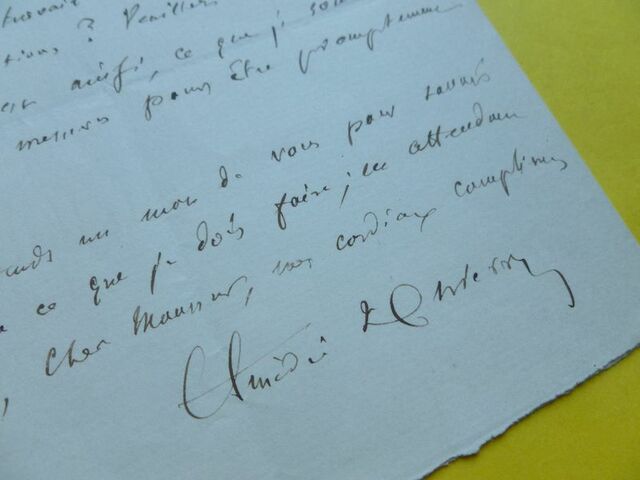 trouvait
tions ? Veuillez
est ainsi, ce que je sou
mesures pour être promptement
ends un mot de vous pour savoir
ce que je dois faire ; en attendant
, Cher Monsieur, mes cordiaux compliments
Amédée Thierry